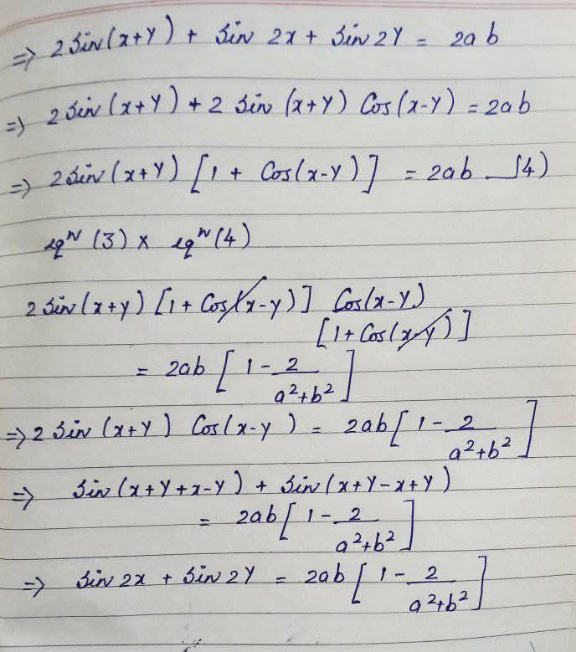 ⇒ 2 Sin(x+y) + Sin 2x + Sin 2y = 2ab
⇒ 2 Sin (x+y) + 2 Sin (x+y) Cos(x-y) = 2ab
⇒ 2 Sin(x+y) [1 + Cos(x-y)] = 2ab _(4)
eqⁿ (3) × eqⁿ (4)
2 Sin(x+y) [1 + Cos(x-y)] Cos(x-y)
[1 + Cos(x-y)]
= 2ab [1 - 2/(a²+b²)]
⇒ 2 Sin (x+y) Cos(x-y) = 2ab [1 - 2/(a²+b²)]
⇒ Sin (x+y+x-y) + Sin (x+y-x+y)
= 2ab [1 - 2/(a²+b²)]
⇒ Sin 2x + Sin 2y = 2ab [1 - 2/(a²+b²)]